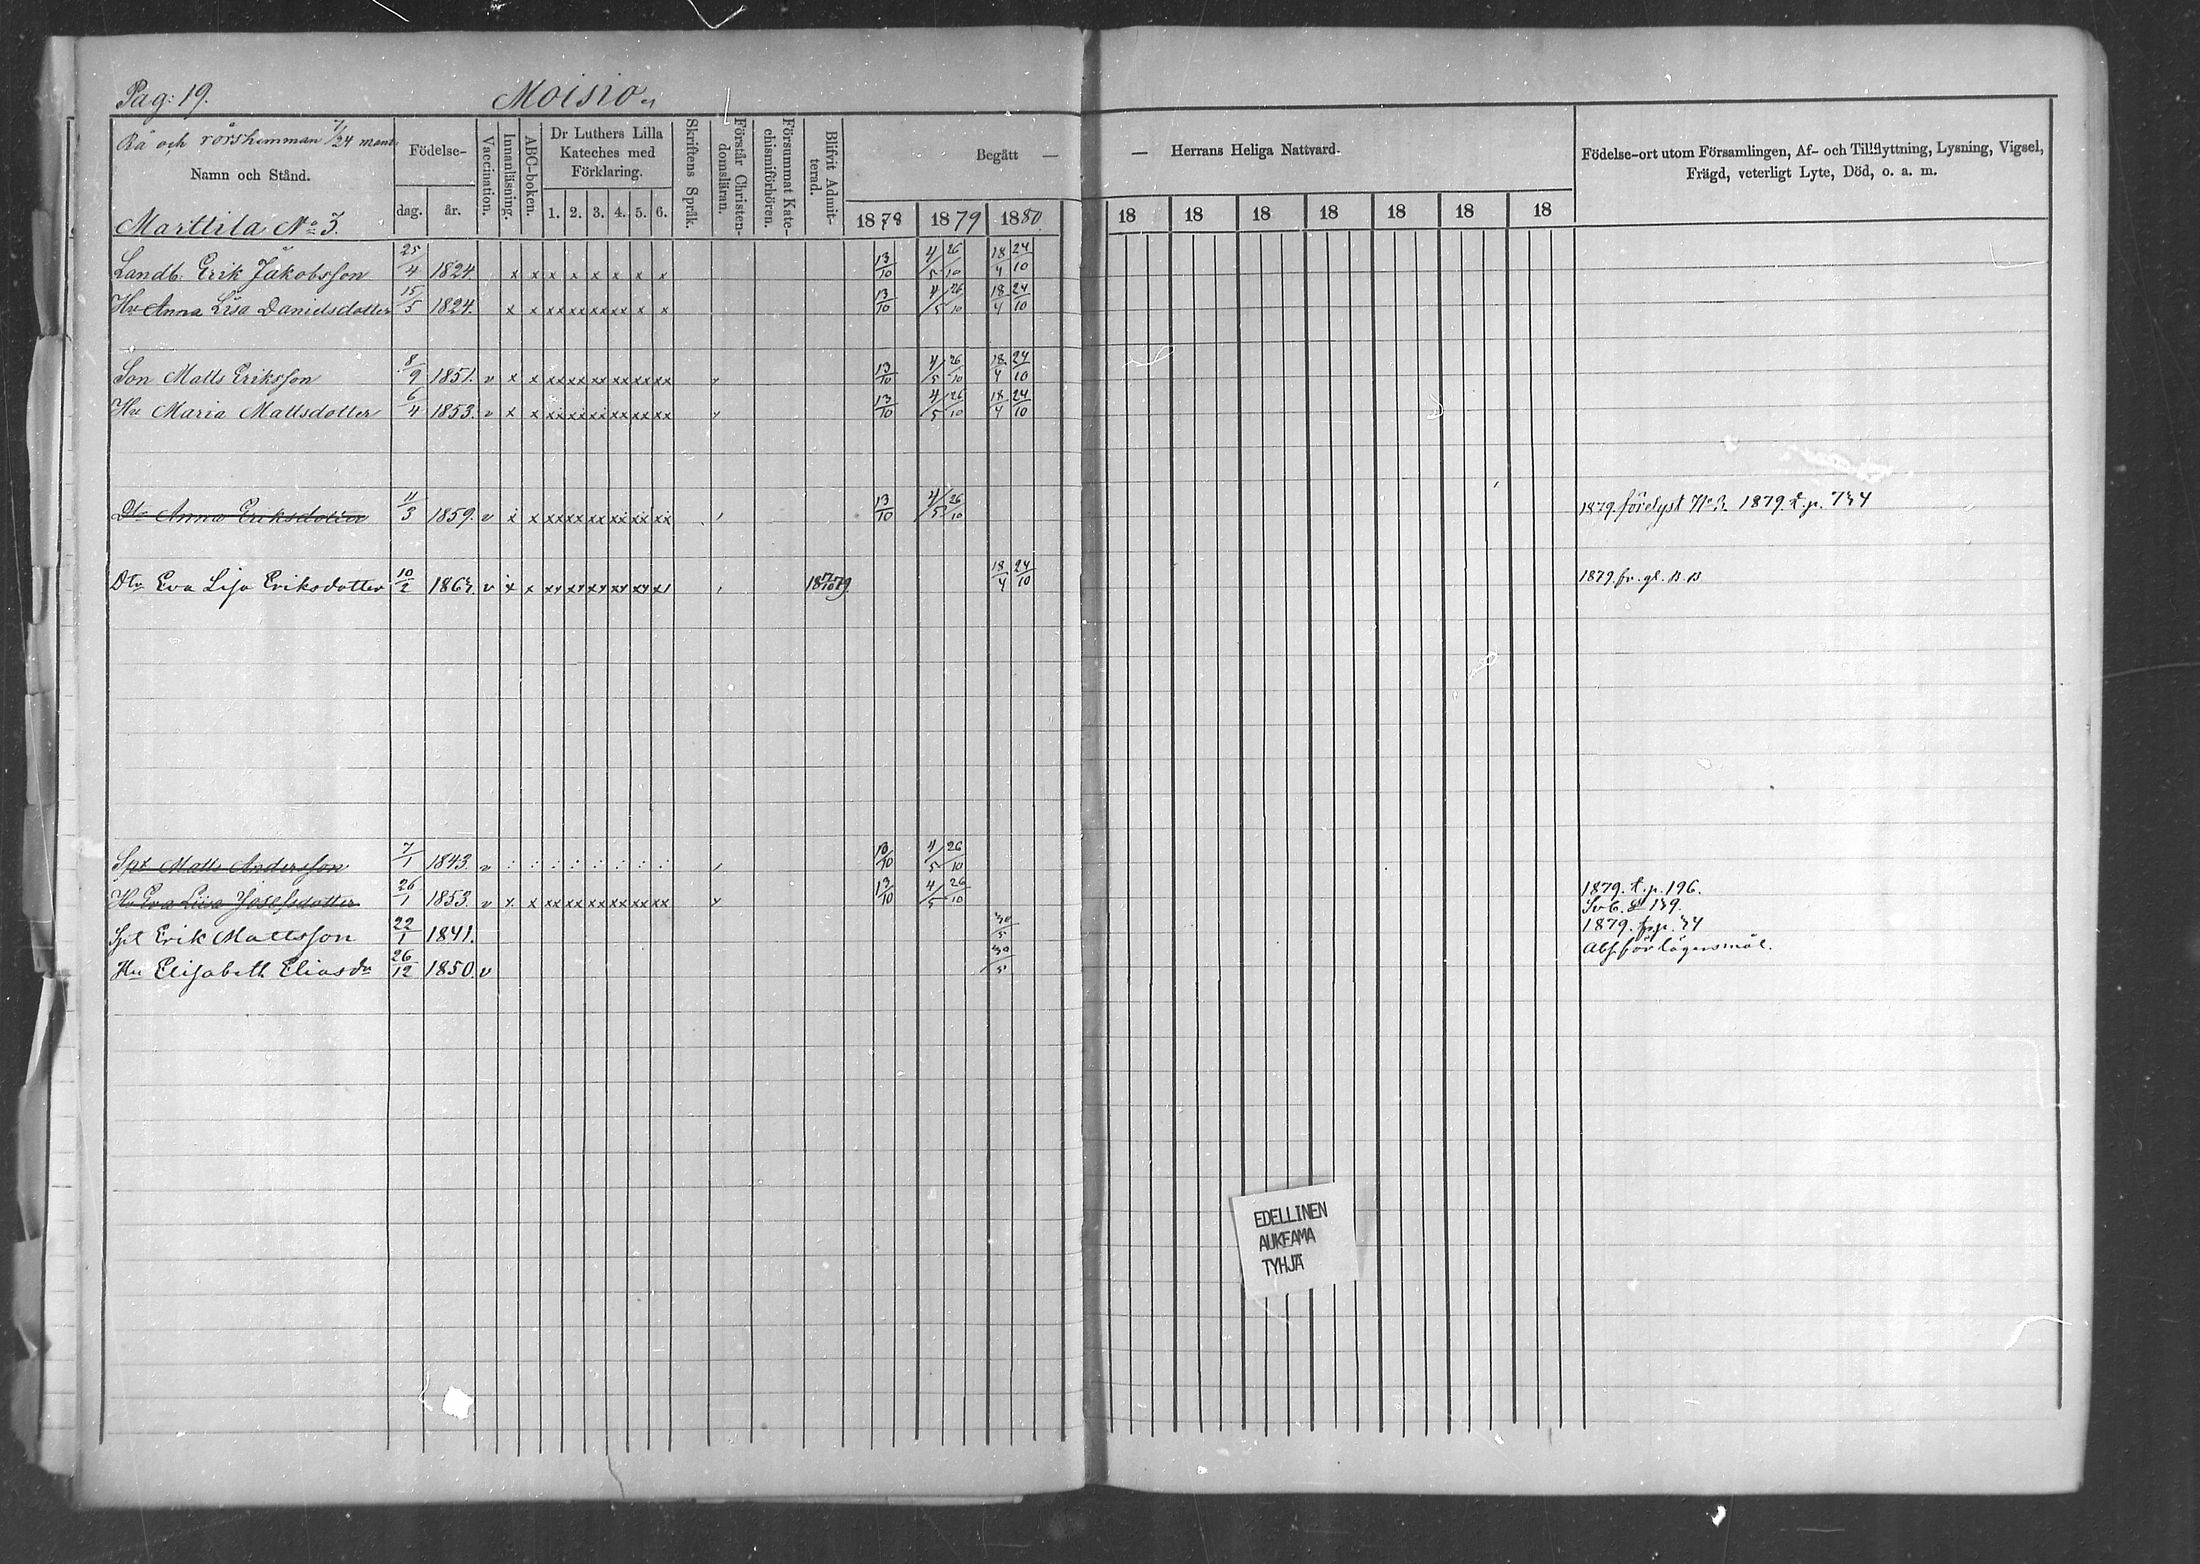 Pag: 19. Moisio
Rå och rörshemman 7/24 mant.
Namn och Stånd.
Marttila No 3.
Födelse-
dag. år.
Vaccination.
Innanläsning.
ABC-boken.
Dr Luthers Lilla
Kateches med
Förklaring.
1. 2. 3. 4. 5. 6.
Skriftens Språk.
Förstår Christen-
domsläran.
Försummat Kate-
chismiförhören.
Blifvit Admit-
terad.
Begått — — Herrans Heliga Nattvard.
1878 1879 1880. 18 18 18 18 18 18 18
Födelse-ort utom Församlingen, Af- och Tillflyttning, Lysning, Vigsel,
Frägd, veterligt Lyte, Död, o. a. m.
Landb. Erik Jakobsson 25/4 1824 x x x x x x x x 13/10 4/5 26/10 18/4 24/10
Hu Anna Lisa Danielsdotter 15/5 1824. x x xx xx xx xx x x 13/10 4/5 26/10 18/4 24/10
Son Matts Eriksson 8/9 1851. v x x xx xx xx xx xx xx 13/10 4/5 26/10 18/4 24/10
Hu Maria Mattsdotter 6/4 1853. v x x xx xx xx xx xx xx 13/10 4/5 26/10 18/4 24/10
Dtr Anna Eriksdotter 11/3 1859. v x x xx xx xx xx xx xx 13/10 4/5 26/10 1879. förelyst No 3. 1879. t. p.
Dtr Eva Lisa Eriksdotter 10/2 v x x xx xx xx xx xx 18/4 24/10 1879. fr. gl. B. B
Spt Matts Andersson 7/1 1843. v : : : : : : : : 13/10 4/5 26/10
Hu Eva Liisa Josefsdotter 26/1 1853. v x x xx xx xx xx xx xx 13/10 4/5 26/10 1879. t. p. 196.
Spt Erik Mattsson 22/1 1841. 30/5 1879. fr. p. 34
Hu Elisabeth Eliasdr 26/12 1850. v 30/5 Abs. för lägersmål.
EDELLINEN
AUKEAMA
TYHJÄ